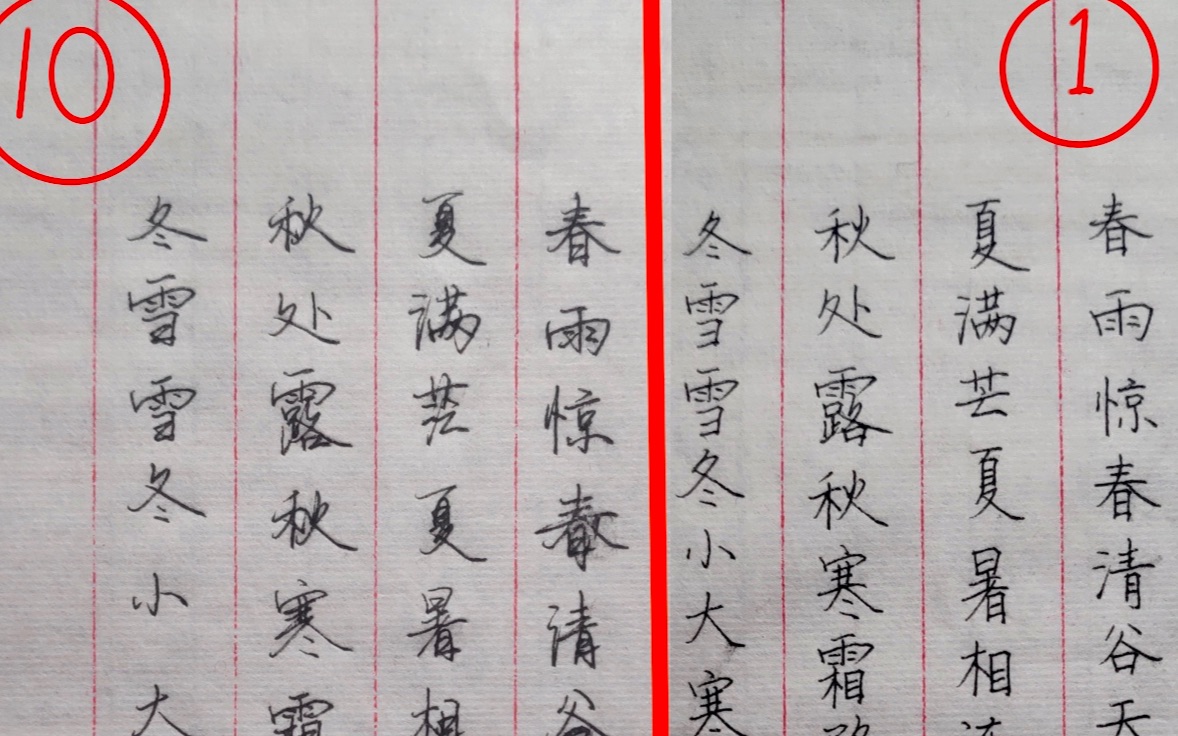 1
春雨惊春清谷天
夏满芒夏暑相
秋处露秋寒霜
冬雪雪冬小大寒
10
春雨惊春清谷
夏满芒夏暑相
秋处露秋寒霜
冬雪雪冬小大